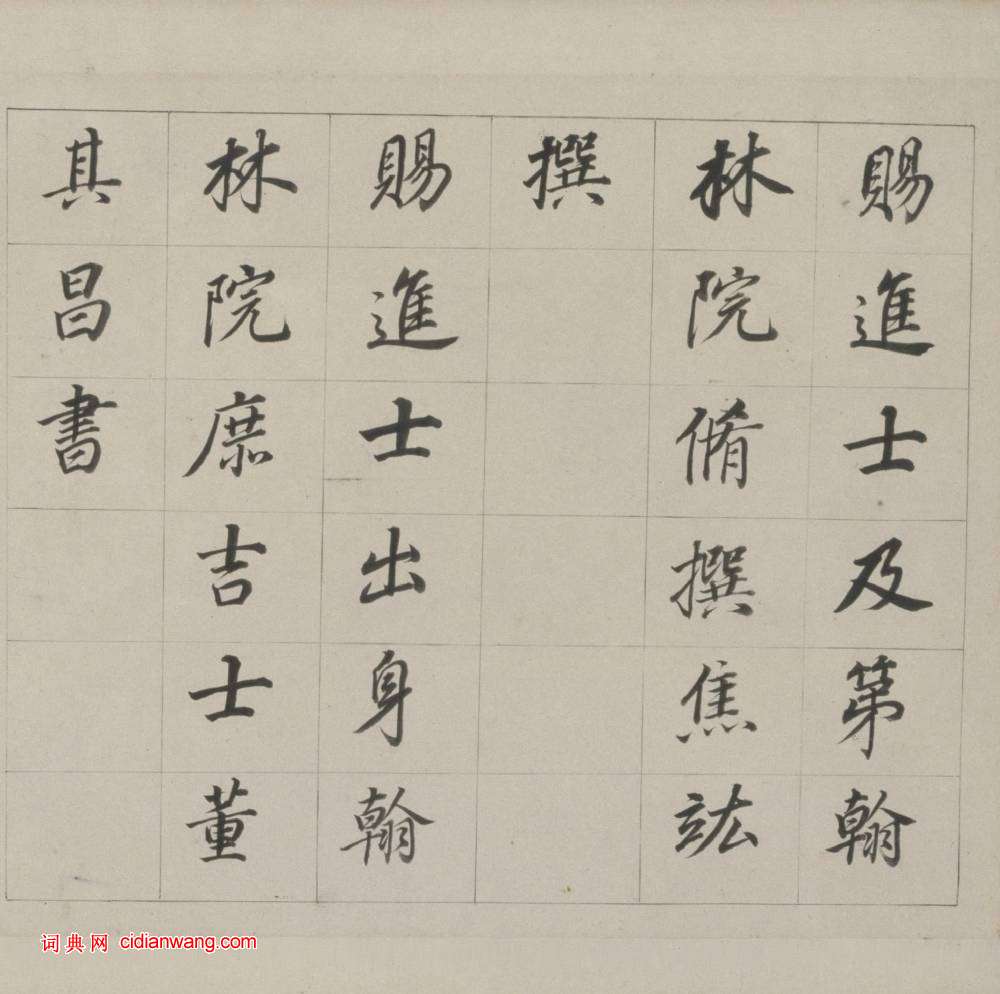 賜進士及第翰
林院脩撰焦竑
撰
賜進士出身翰
林院庶吉士董
其昌書
词典网 cidianwang.com